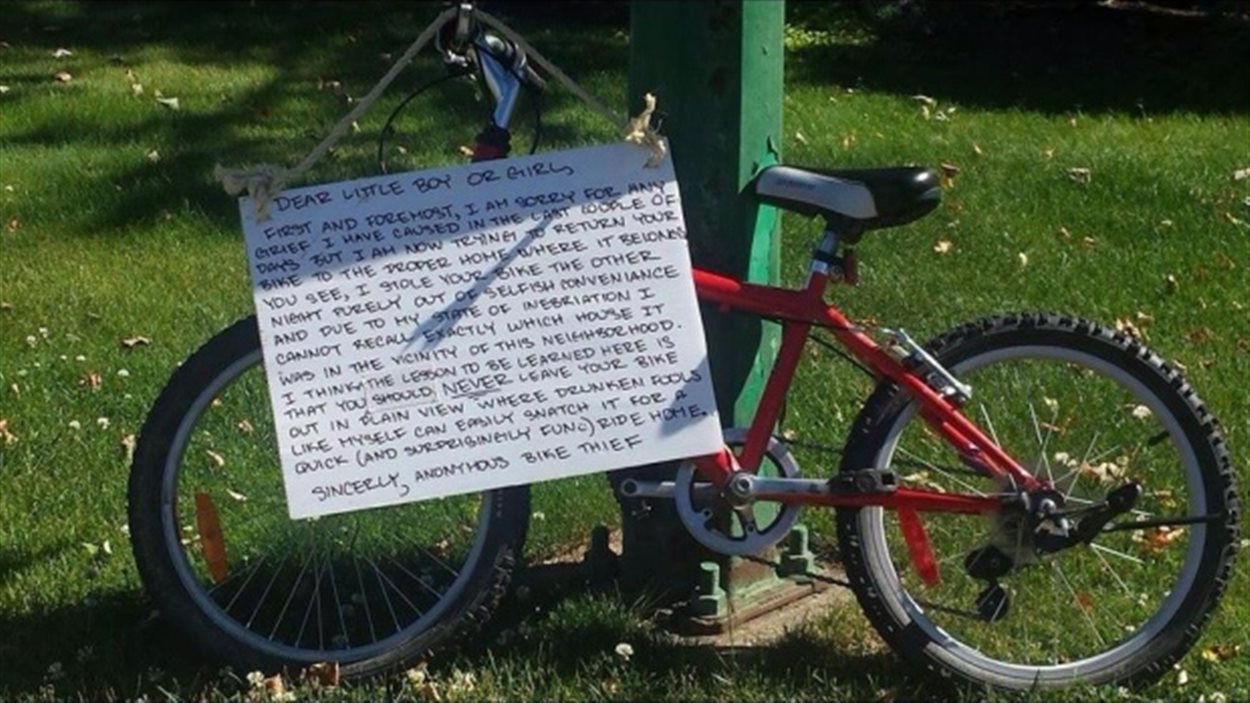 DEAR LITTLE BOY OR GIRL,
FIRST AND FOREMOST, I AM SORRY FOR ANY
GRIEF I HAVE CAUSED IN THE LAST COUPLE OF
DAYS, BUT I AM NOW TRYING TO RETURN YOUR
BIKE TO THE PROPER HOME WHERE IT BELONGS
YOU SEE, I STOLE YOUR BIKE THE OTHER
NIGHT PURELY OUT OF SELFISH CONVENIANCE
AND DUE TO MY STATE OF INEBRIATION I
CANNOT RECALL EXACTLY WHICH HOUSE IT
WAS IN THE VICINITY OF THIS NEIGHBORHOOD.
I THINK THE LESSON TO BE LEARNED HERE IS
THAT YOU SHOULD NEVER LEAVE YOUR BIKE
OUT IN PLAIN VIEW WHERE DRUNKEN FOOLS
LIKE MYSELF CAN EASILY SNATCH IT FOR A
QUICK (AND SURPRISINGILY FUN!) RIDE HOME.
SINCERLY, ANONYMOUS BIKE THIEF